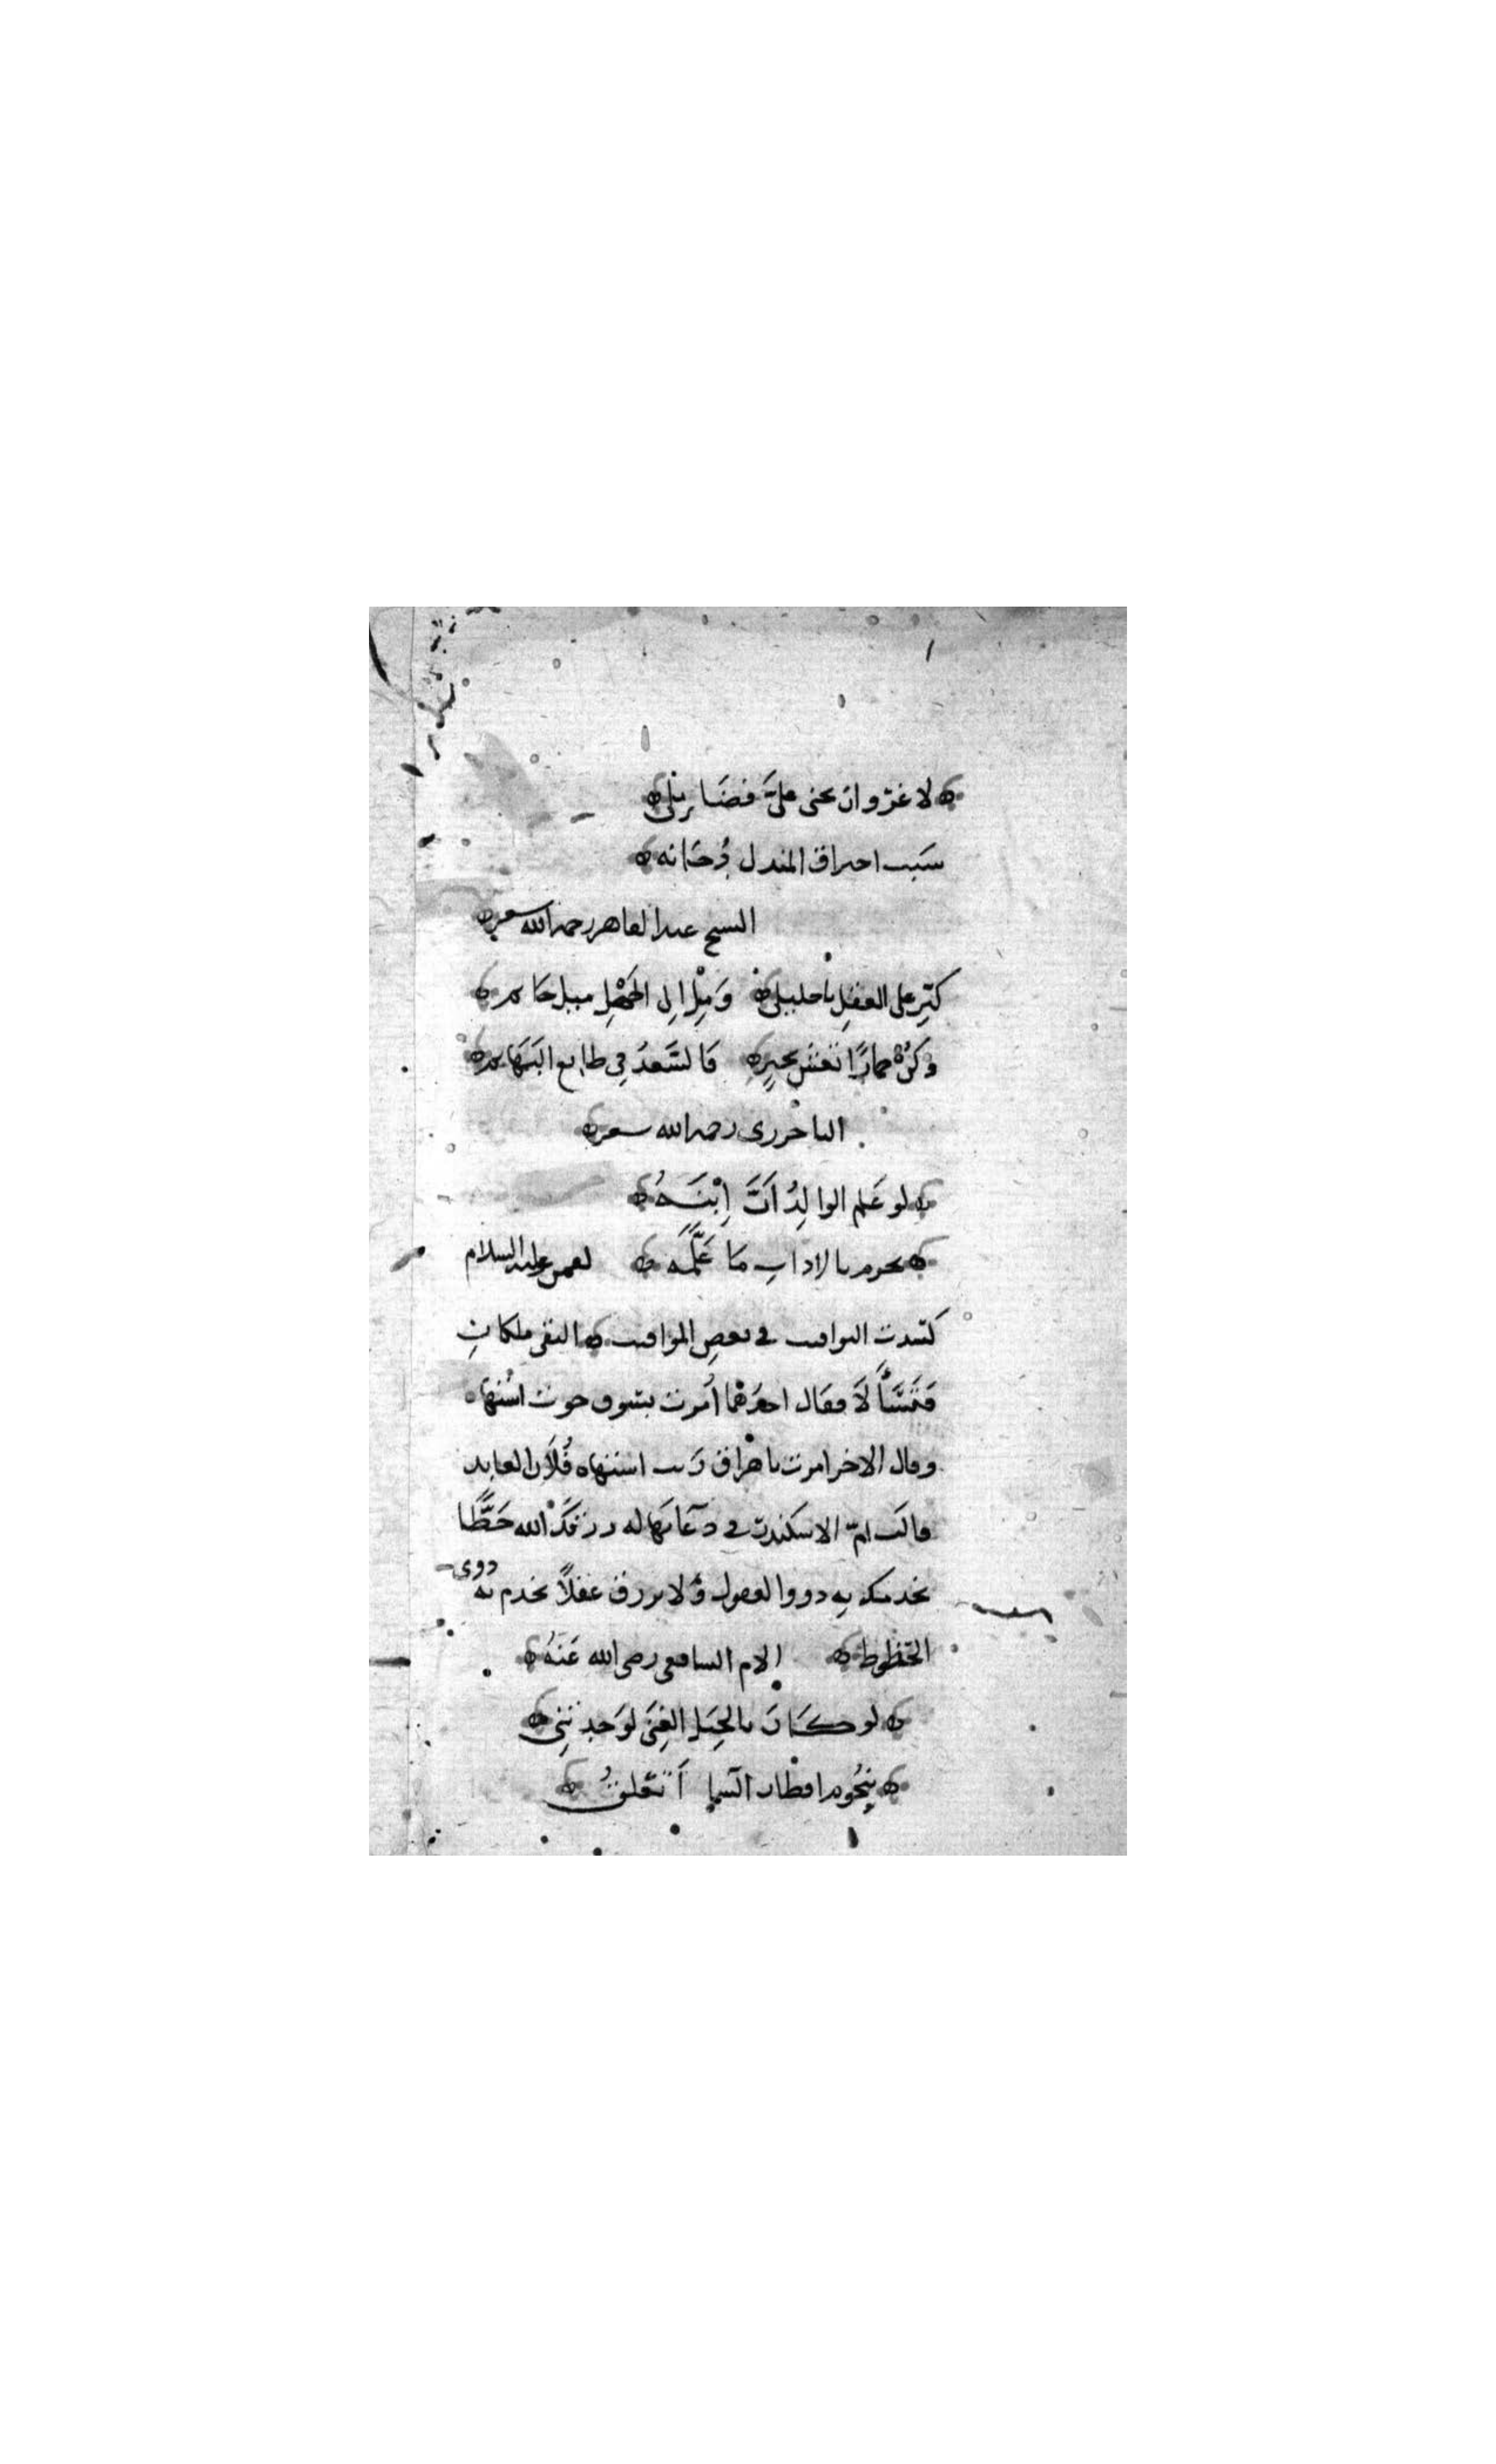 لا غرو ان يجنى علىَّ فضَايلى
سَبب احراق المندل دُخَانه
الشيخ عبد القاهر رحمه الله شعر
كبّر على العقلِ يا خليلى وَمِلْ الى الجَهْلِ ميل هَايم
وكُنْ حمارًا تعش بخيرٍ فالسَّعدُ فى طايع البَهَايم
الباخرزى رحمه الله شعر
لو عَلم الوالِدُ اَنَّ اِبْنَهُ
يحرم بالادابِ مَا عَلَّمَه لعمر عليه السلام
كسدت اليواقيت فى بعضِ المواقيت التقى ملكانِ
فَتَسَّاَلاَ فقال احدهُما اُمرت بسوق حوت اشتهاه
وقال الاخر امرت باهراق زيت اشتهاه فُلاَن العابد
قالت امّ الاسكندر فى دعَايهَا له رزقكَ الله حَظًّا
يخدمك به ذووا العقول وَلا يرزق عقلاً تخدم به ذوى
الحُظوظ الامام الشافعى رضى الله عَنهُ
لو كَانَ بالحِيَل الغِنَى لوَجدتنِى
بِنجُوم اقطار السّما تعلقُ